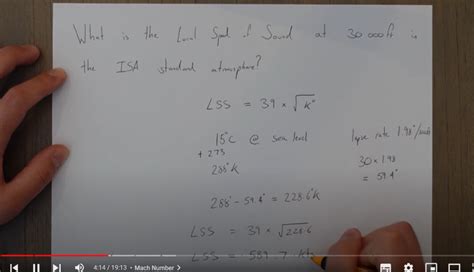 What is the Local Speed of Sound at 30 000ft in
the ISA standard atmosphere?
LSS = 39 × √K°
15°C @ sea level
+ 273
288°K
lapse rate 1.98°/
30 × 1.98
= 59.4°
288° - 59.4° = 228.6K
LSS = 39 × √228.6
LSS = 589.7
4:14 / 19:13 • Mach Number >